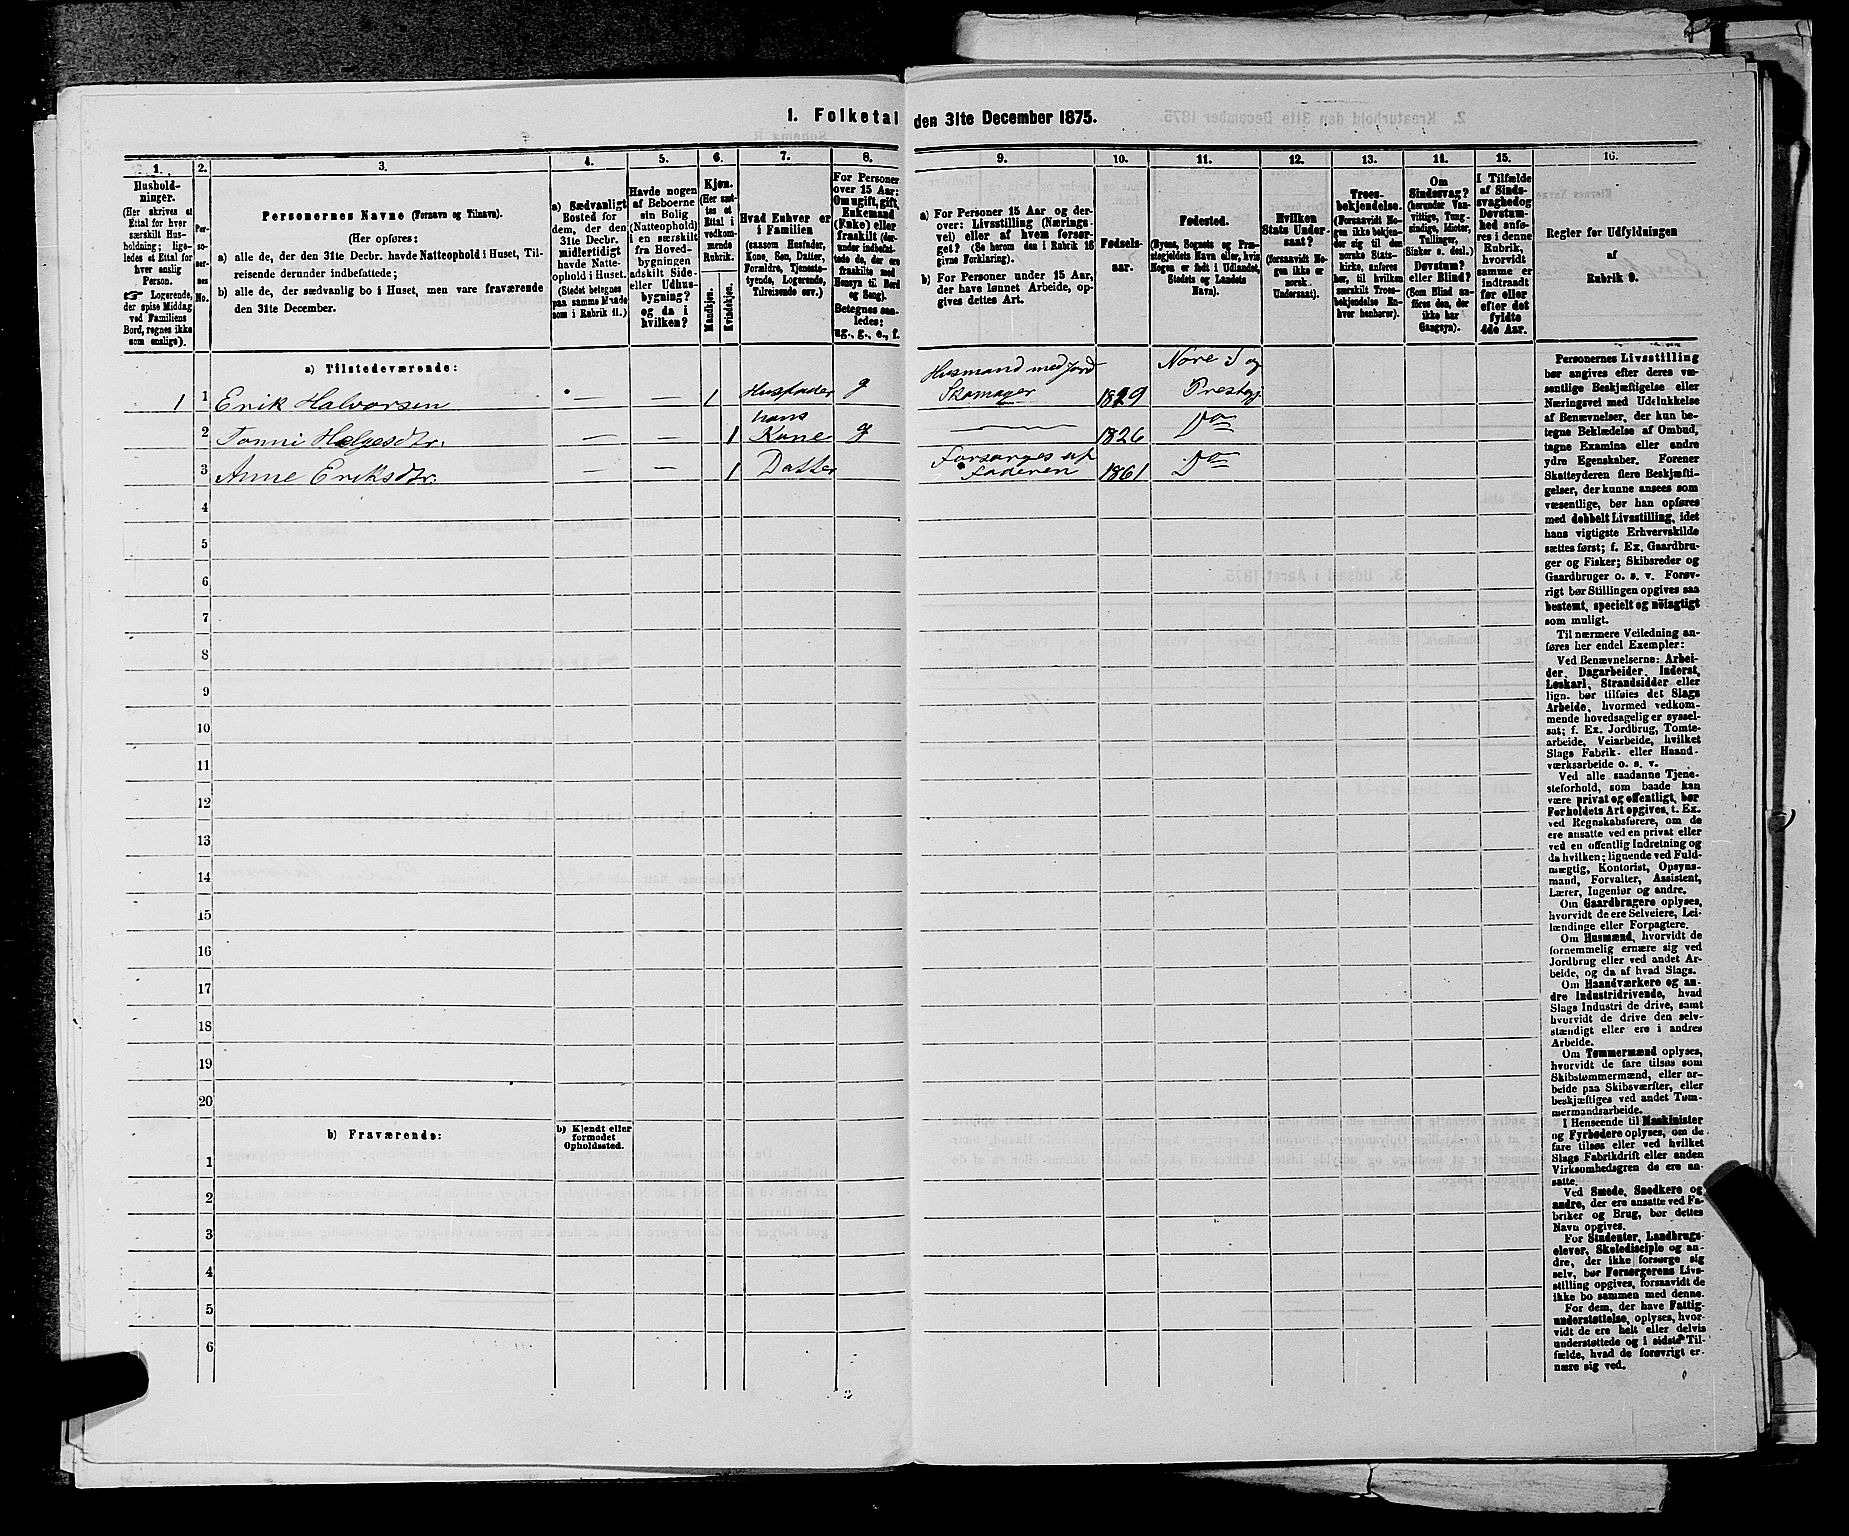 1. Folketal den 31te December 1875.
1.
Hushold-
ninger.
(Her skrives et
Ettal for hver
særskilt Hus-
holdning; lige-
ledes et Ettal for
hver enslig
Person.
☞ Logerende,
der spise Middag
ved Familiens
Bord, regnes ikke
som enslige).
2.
Per-
so-
ner-
nes
No.
3.
Personernes Navne (Fornavn og Tilnavn).
(Her opføres:
a) alle de, der den 31te Decbr. havde Natteophold i Huset, Til-
reisende derunder indbefattede;
b) alle de, der sædvanlig bo i Huset, men vare fraværende
den 31te December.
4.
a) Sædvanligt
Bosted for
dem, der den
31te Decbr.
midlertidigt
havde Natte-
ophold i Huset.
(Stedet betegnes
paa samme Maade
som i Rubrik 11.)
5.
Havde nogen
af Beboerne
sin Bolig
(Natteophold)
i en særskilt
fra Hoved-
bygningen
adskilt Side-
eller Udhus-
bygning?
og da i
hvilken?
6.
Kjøn.
(Her sæt-
tes et
Ettal i
vedkom-
mende
Rubrik.
Mandkjøn.
Kvindekjøn.
7.
Hvad Enhver er
i Familien
(saasom Husfader,
Kone, Søn, Datter,
Forældre, Tjeneste-
tyende, Logerende,
Tilreisende osv.)
8.
For Personer
over 15 Aar:
Om ugift, gift,
Enkemand
(Enke) eller
fraskilt (der-
under indbefat-
tede de, der ere
fraskilte med
Hensyn til Bord
og Seng).
Betegnes saa-
ledes:
ug., g., e., f.
9.
a) For Personer 15 Aar og der-
over: Livsstilling (Nærings-
vei) eller af hvem forsør-
get? (Se herom den i Rubrik 16
givne Forklaring).
b) For Personer under 15 Aar,
der have lønnet Arbeide, op-
gives dettes Art.
10.
Fødsels-
aar.
11.
Fødested.
(Byens, Sognets og Præ-
stegjeldets Navn eller, hvis
Nogen er født i Udlandet,
Stedets og Landets
Navn).
12.
Hvilken
Stats Under-
saat?
(forsaavidt No-
gen ikke er
norsk
Undersaat).
13.
Troes-
bekjendelse.
(Forsaavidt No-
gen ikke bekjen-
der sig til den
norske Stats-
kirke, anføres
her, til hvilken
særskilt Troes-
bekjendelse En-
hver henhører).
14.
Om
Sindssvag?
(herunder Van-
vittige, Tung-
sindige, Idioter,
Tullinger,
Sinker o. desl.)
Døvstum?
eller Blind?
(Som Blind an-
føres den, der
ikke har
Gangsyn).
15.
I Tilfælde
af Sinds-
svaghed og
Døvstum-
hed anfø-
res i denne
Rubrik,
hvorvidt
samme er
indtraadt
før eller
efter det
fyldte
4de Aar.
16.
Regler for Udfyldningen
af
Rubrik 9.
a) Tilstedeværende:
1 1 Erik Halvorsen — — 1 Husfader g Husmand med Jord Skomager 1829 Nore S og Prestgj.
2 Tonni Helgesdtr. — — 1 hans Kone g — 1826 Do
3 Anne Eriksdtr. — — 1 Datter Forsørges af Faderen 1861 Do
4
5
6
7
8
9
10
11
12
13
14
15
16
17
18
19
20
b) Fraværende:
b) Kjendt eller
formodet
Opholdssted.
1
2
3
4
5
6
Personernes Livsstilling
bør angives efter deres væ-
sentlige Beskjæftigelse eller
Næringsvei med Udelukkelse
af Benævnelser, der kun be-
tegne Beklædelse af Ombud,
tagne Examina eller andre
ydre Egenskaber. Forener
Skatteyderen flere Beskjæfti-
gelser, der kunne ansees som
væsentlige, bør han opføres
med dobbelt Livsstilling, idet
hans vigtigste Erhvervskilde
sættes først; f. Ex. Gaardbru-
ger og Fisker; Skibsreder og
Gaardbruger o. s. v. Forøv-
rigt bør Stillingen opgives saa
bestemt, specielt og nøiagtigt
som muligt.
Til nærmere Veiledning an-
føres her endel Exempler:
Ved Benævnelserne: Arbei-
der, Dagarbeider, Inderst,
Løskarl, Strandsidder eller
lign. bør tilføies det Slags
Arbeide, hvormed vedkom-
mende hovedsagelig er syssel-
sat; f. Ex. Jordbrug, Tomte-
arbeide, Veiarbeide, hvilket
Slags Fabrik- eller Haand-
værksarbeide o. s. v.
Ved alle saadanne Tjene-
steforhold, som baade kan
være privat og offentligt, bør
Forholdets Art opgives, t. Ex.
ved Regnskabsførere, om de
ere ansatte ved en privat eller
ved en offentlig Indretning og
da hvilken; lignende ved Fuld-
mægtig, Kontorist, Opsyns-
mand, Forvalter, Assistent,
Lærer, Ingeniør og andre.
Om Gaardbrugere oplyses,
hvorvidt de ere Selveiere, Lei-
lændinge eller Forpagtere.
Om Husmænd, hvorvidt de
fornemmelig ernære sig ved
Jordbrug eller ved andet Ar-
beide, og da af hvad Slags.
Om Haandværkere og an-
dre Industridrivende, hvad
Slags Industri de drive, samt
hvorvidt de drive den selv-
stændigt eller ere i andres
Arbeide.
Om Tømmermænd oplyses,
hvorvidt de fare tilsøs som
Skibstømmermænd, eller ar-
beide paa Skibsværfter, eller
beskjæftiges ved andet Tøm-
mermandsarbeide.
I Henseende til Maskinister
og Fyrbødere oplyses, om de
fare tilsøs eller ved hvilket
Slags Fabrikdrift eller anden
Virksomhedsgren de ere an-
satte.
Ved Smede, Snedkere og
andre, der ere ansatte ved Fa-
briker og Brug, bør dettes
Navn opgives.
For Studenter, Landbrugs-
elever, Skoledisciple og an-
dre, der ikke forsørge sig
selv, bør Forsørgerens Livs-
stilling opgives, forsaavidt de
ikke bo sammen med denne.
For dem, der have Fattig-
understøttelse, oplyses, hvor-
vidt de ere helt eller delvis
understøttede og i sidste Til-
fælde, hvad de forøvrigt er-
nære sig ved.